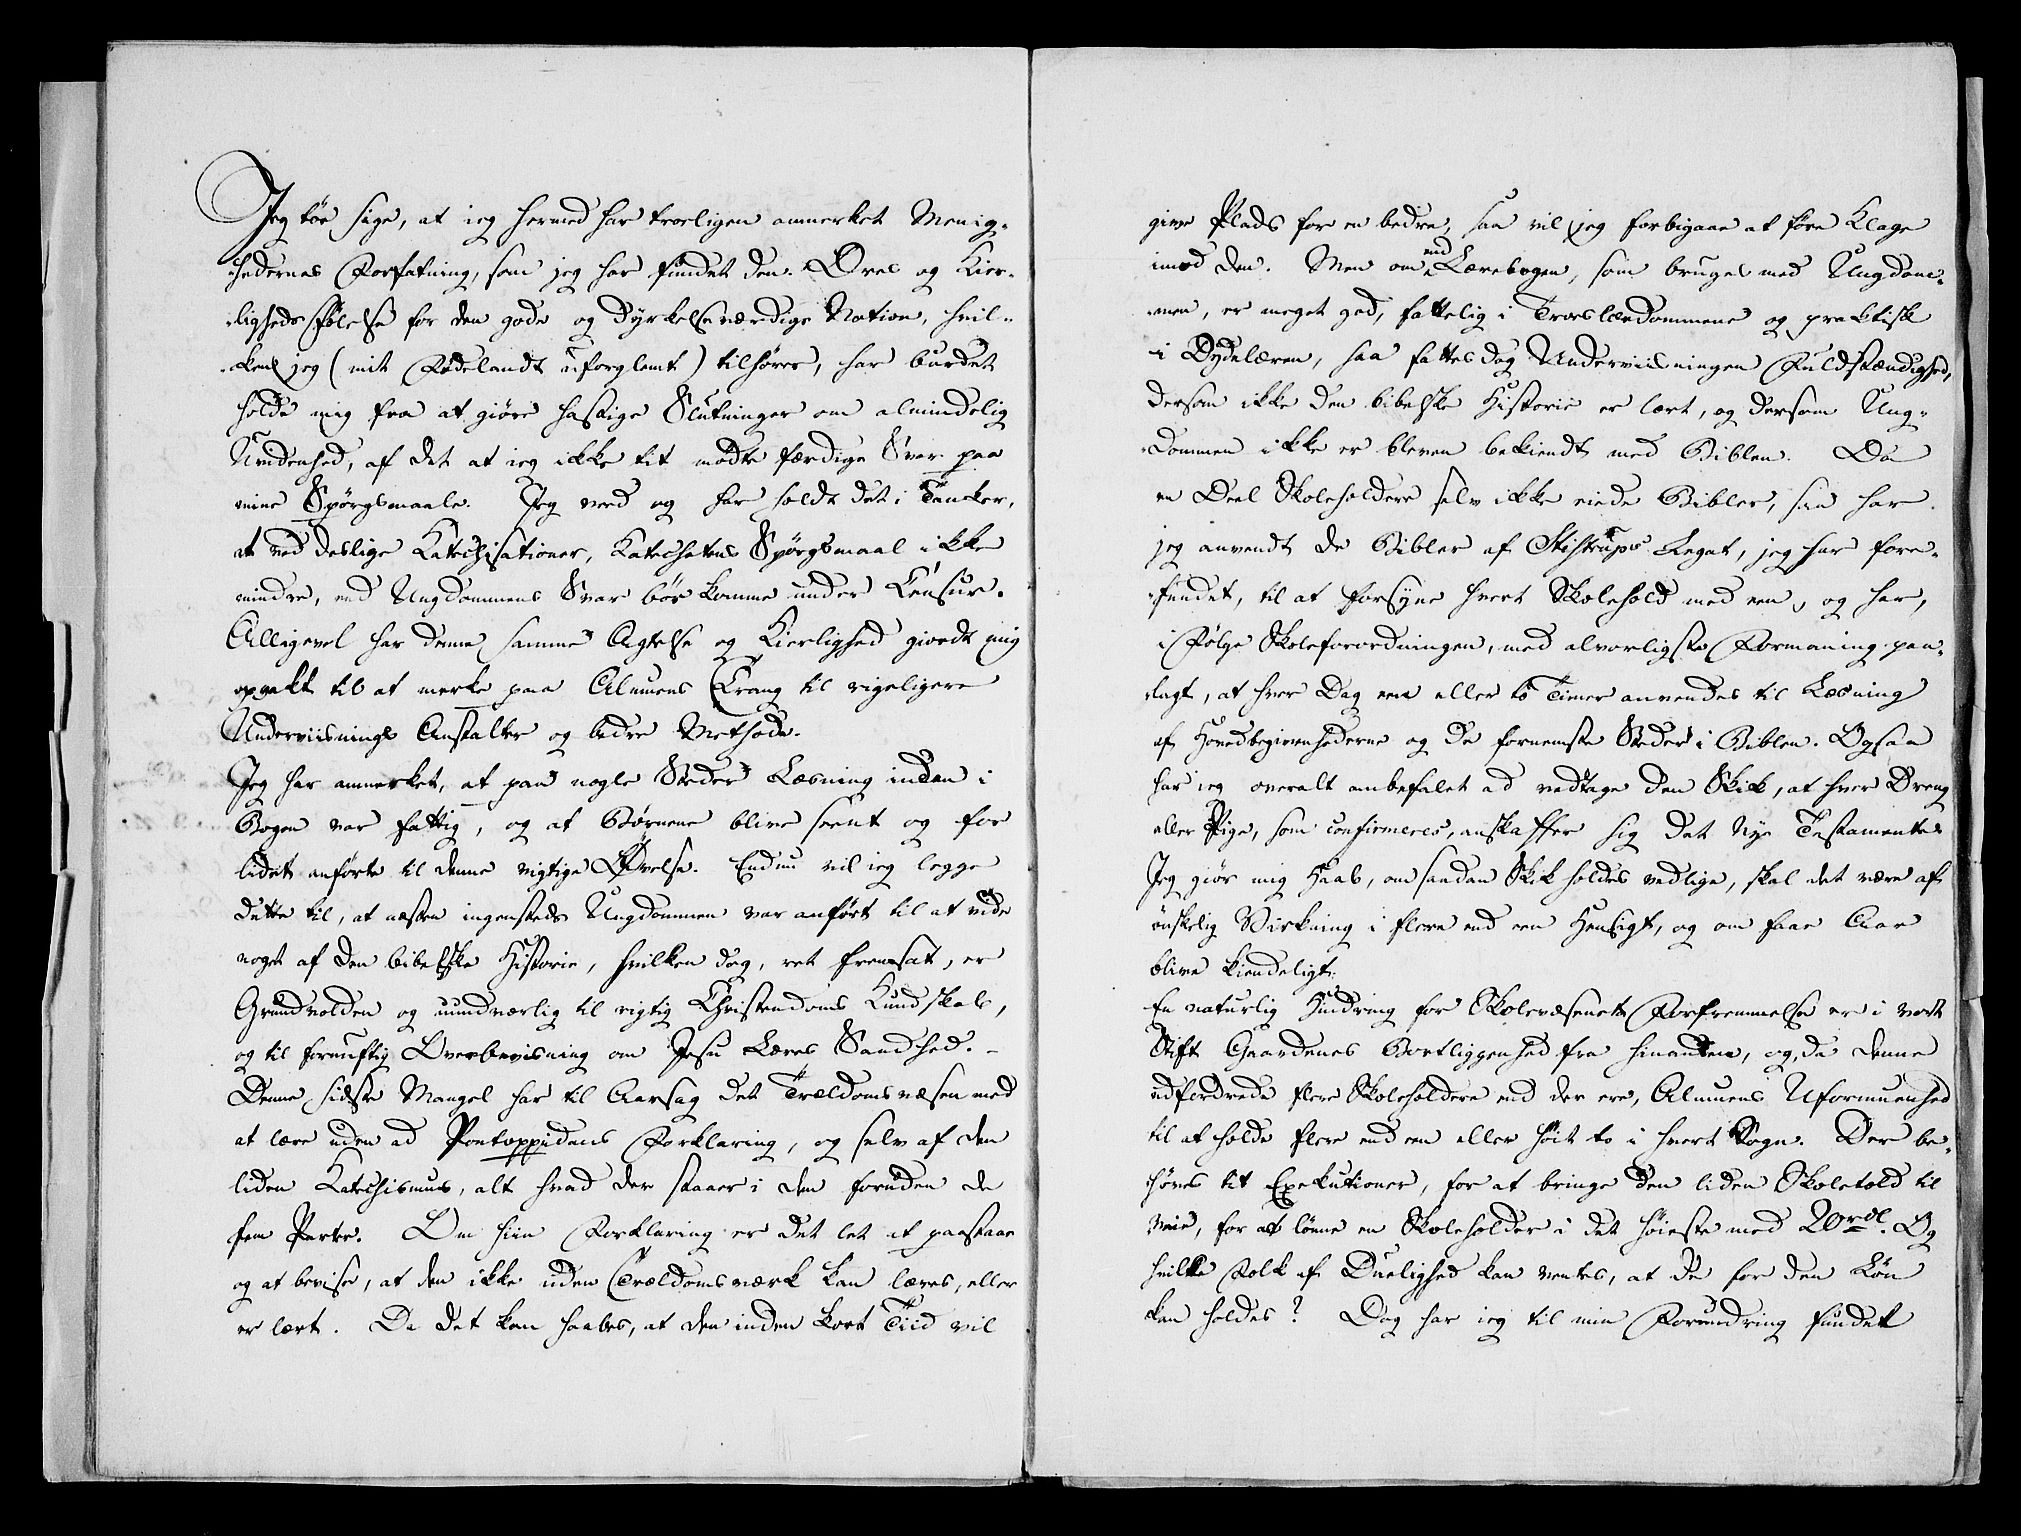 Jeg tør sige, at ieg hermed har troeligen anmerket Menig-
hedernes Forfatning, som jeg har fundet den. Øres og Kier-
ligheds Følelse for den gode og Dyrkelseværdige Nation, hvil-
ken jeg (mit Fødelandt uforglemt) tilhører, har burdet
holde mig fra at giøre hastige Slutninger om almindelig
Uvidenhed, af det at ieg ikke tit mødte færdige Svar paa
mine Spørgsmaale. Jeg veed og har holdt det i Tancker,
at ved deslige Katechisationer, Katechetens Spørgsmaal ikke
mindre, end Ungdommens Svar bør komme under Censur.
Alligevel har denne samme Agtelse og Kierlighed giordt mig
opvakt til at merke paa Almuens Trang til rigeligere
Underviisnings Anstalter og bedre Methode.
Jeg har anmerket, at paa nogle Steder Læsning inden i
Bogen var fattig, og at Børnene blive seent og for
lidet anførte til denne vigtige Øvelse. Endnu vil ieg legge
dette til, at næsten ingensteds Ungdommen var anført til at vide
noget af den bibelske Historie, hvilken dog, ret fremsat, er
Grundvolden og uundværlig til rigtig Christendoms Kundskab,
og til fornuftig Overbeviisning om Jesu Læres Sandhed. -
Denne sidste Mangel har til Aarsag det Trældoms væsen med
at lære uden ad Pontoppidans Forklaring, og selv af den
liden Katechismus, alt hvad der staaer i den foruden de
fem Parter. Om hiin Forklaring er det let at paastaae
og at bevise, at den ikke uden Trældomsværk kan læres, eller
er lært. Da det kan haabes, at den inden kort Tiid vil
give Plads for en bedre, saa vil jeg forbigaae at føre Klage
imod den. Men om end Lærebogen, som bruges med Ungdom-
men, er meget god, fattelig i Troeslærdommene og praktisk
i Dydelæren, saa fattes dog Underviisningen Fuldstændighed,
dersom ikke den bibelske Historie er lært, og dersom Ung-
dommen ikke er bleven bekiendt med Biblen. Da
en Deel Skoleholdere selv ikke eiede Bibler, saa har
jeg anvendt de Bibler af Stistrups Legat, jeg har fore-
fundet, til at forsyne hvert Skolehold med een, og har,
i Følge Skoleforordningen, med alvorligste Formaning paa-
lagt, at hver Dag een eller to Timer anvendes til Læsning
af Hovedbegivenhederne og de fornemste Steder i Biblen. Ogsaa
har ieg overalt anbefalet ad vedtage den Skik, at hver Dreng
eller Pige, som confirmeres, anskaffer sig det Nye Testamente.
Jeg giør mig Haab, om saadan Skik holdes vedlige, skal det være af
ønskelig Virkning i flere end een Hensigt, og om faae Aar
blive kiendeligt.
En naturlig Hindring for Skolevæsenets Forfremmelse er i vort
Stift Gaardenes Bortliggenhed fra hinanden, og, da denne
udfordrede flere Skoleholdere end der ere, Almuens Uformuenhed
til at holde flere end en eller høit to i hvert Sogn. Der be-
høves tit Exekutioner, for at bringe den liden Skoletold til
veie, for at lønne en Skoleholder i det høieste med 20 rdl. Og
hvilke Folk af Duelighed kan ventes, at de for den Løn
kan holdes? Dog har ieg til min Forundring fundet